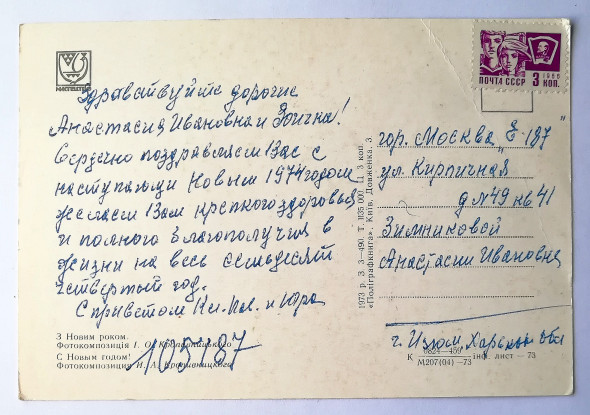 МИСТЕЦТВО
Здравствуйте дорогие
Анастасия Ивановна и Зоичка!
Сердечно поздравляем Вас с
наступающи Новым 1974 годом
желаем Вам крепкого здоровья
и полного благополучия в
жизни на весь семьдесят
четвертый год.
С приветом и Юра
З Новим роком.
Фотокомпозиція І. О. Кропивницького
С Новым годом!
Фотокомпозиция И. А. Кропивницкого
105187
1973 р. З. 3—490. Т. 1135 000. Ц. 3 коп.
«Поліграфкнига». Київ, Довженка, 3.
1966
ПОЧТА СССР 3 КОП.
гор. Москва „Е-187"
ул. Кирпичная
д N 49 кв 41
Зимниковой
Анастасии Ивановне
г. Изюм, Харьков обл
К 0824—459 інф. лист — 73
М207(04)—73